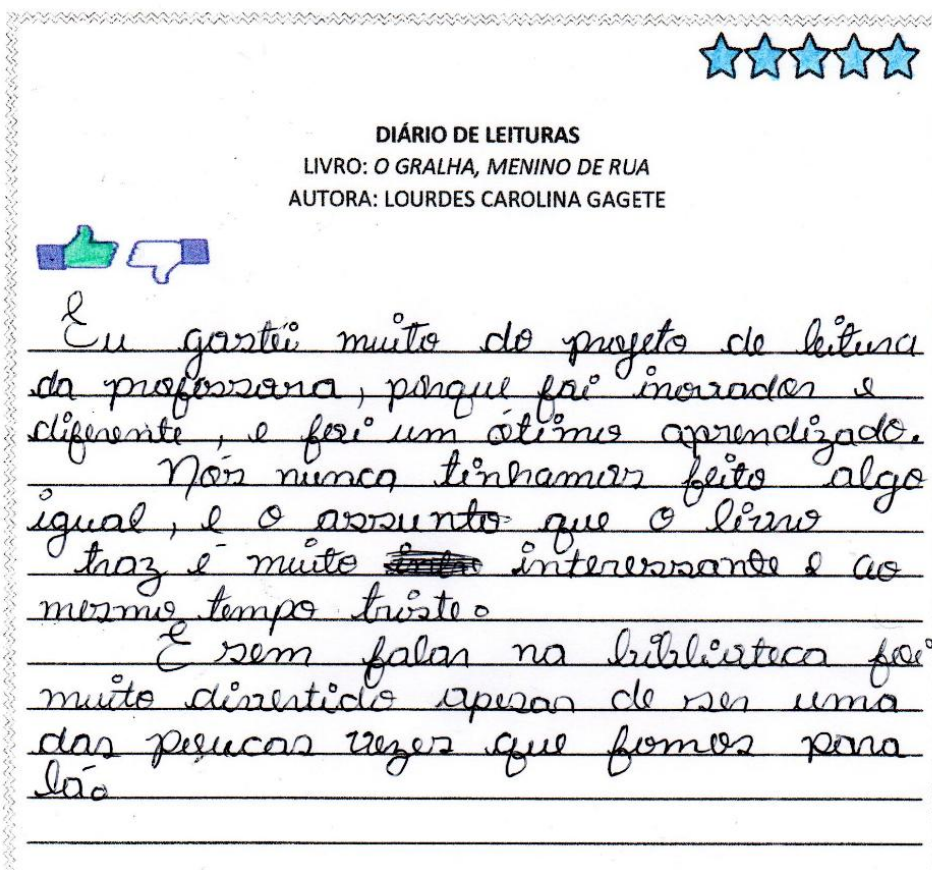 DIÁRIO DE LEITURAS
LIVRO: O GRALHA, MENINO DE RUA
AUTORA: LOURDES CAROLINA GAGETE
Eu gostei muito do projeto de leitura
da professora, porque foi inovador e
diferente, e foi um ótimo aprendizado.
Nós nunca tinhamos feito algo
igual, e o assunto que o livro
traz é muito interessante e ao
mesmo tempo triste.
E sem falar na biblioteca foi
muito divertido apesar de ser uma
das poucas vezes que fomos para
lá.